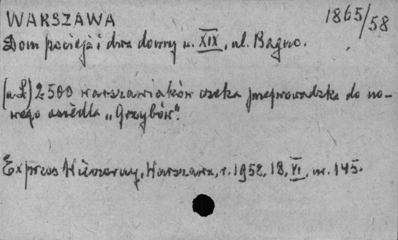 WARSZAWA
1865/58
Dom pociejś i dwa domy w. XIX, ul. Bagno.
(u.L) 2500 warszawiaków czeka przeprowadzka do no-
wego osiedla „Grzybów".
Express Wieczorny, Warszawa, r. 1958, 18, VI, nr. 145.